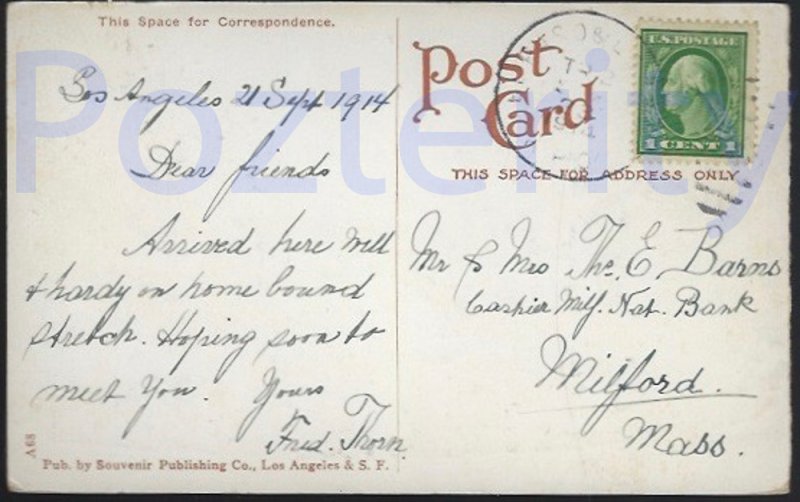 This Space for Correspondence.
Los Angeles 21 Sept 1914
Dear friends
Arrived here well
& hardy on home bound
stretch. Hoping soon to
meet you. Yours
Fred. Thorn
A68
Pub. by Souvenir Publishing Co., Los Angeles & S. F.
Post
Card
U.S. POSTAGE
1 CENT 1
THIS SPACE FOR ADDRESS ONLY
Mr & Mrs Tho. E. Barns
Cashier Milf. Nat. Bank
Milford.
Mass.
Pozterity